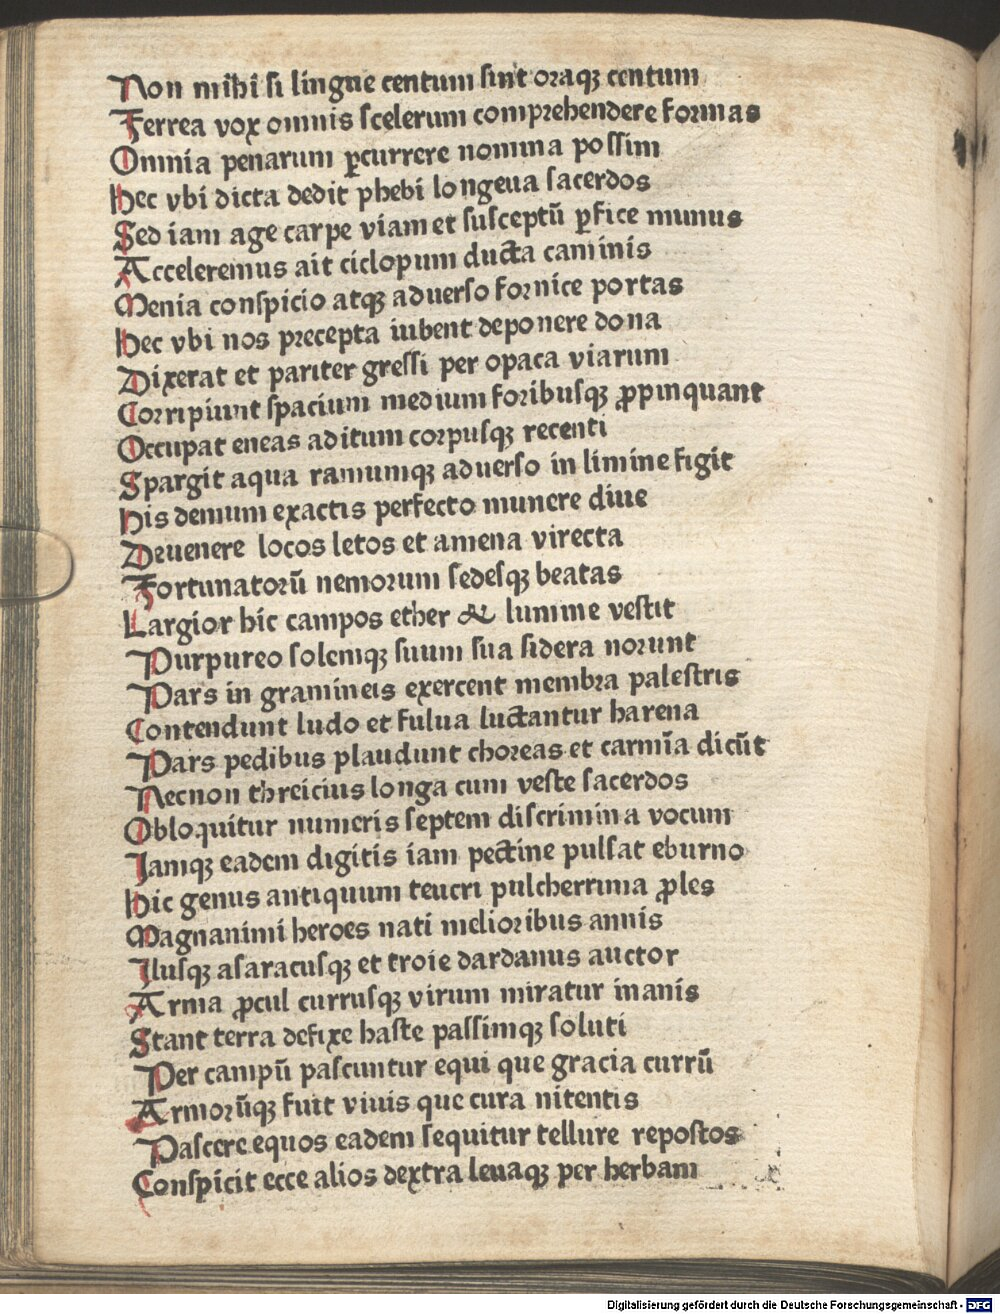 Non mihi si lingue centum sint oraqꝫ centum
Ferrea vox omnis scelerum comprehendere formas
Omnia penarum ꝑcurrere nomina possim
Hec vbi dicta dedit phebi longeua sacerdos
Sed iam age carpe viam et susceptū ꝑfice munus
Acceleremus ait ciclopum ducta caminis
Menia conspicio atqꝫ aduerso fornice portas
Hec vbi nos precepta iubent deponere dona
Dixerat et pariter gressi per opaca viarum
Corripiunt spacium medium foribusqꝫ ꝓpinquant
Occupat eneas aditum corpusqꝫ recenti
Spargit aqua ramumqꝫ aduerso in limine figit
His demum exactis perfecto munere diue
Deuenere locos letos et amena virecta
Fortunatorū nemorum sedesqꝫ beatas
Largior hic campos ether & lumine vestit
Purpureo solemqꝫ suum sua sidera norunt
Pars in gramineis exercent membra palestris
Contendunt ludo et fulua luctantur harena
Pars pedibus plaudunt choreas et carmīa dicūt
Necnon threicius longa cum veste sacerdos
Obloquitur numeris septem discrimina vocum
Iamqꝫ eadem digitis iam pectine pulsat eburno
Hic genus antiquum teucri pulcherrima ꝓles
Magnanimi heroes nati melioribus annis
Ilusqꝫ asaracusqꝫ et troie dardanus auctor
Arma ꝓcul currusqꝫ virum miratur inanis
Stant terra defixe haste passimqꝫ soluti
Per campū pascuntur equi que gracia currū
Armorūqꝫ fuit viuis que cura nitentis
Pascere equos eadem sequitur tellure repostos
Conspicit ecce alios dextra leuaqꝫ per herbam
Digitalisierung gefördert durch die Deutsche Forschungsgemeinschaft - DFG